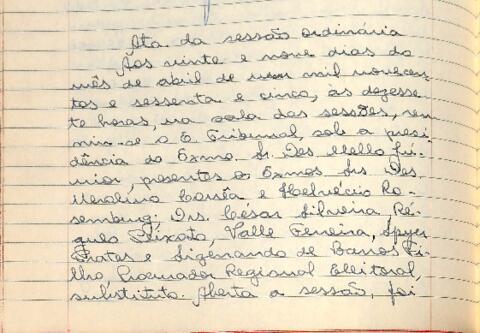 Ata da sessão ordinária
Aos vinte e nove dias do
mês de abril de um mil novecen
tos e sessenta e cinco, às dezesse
te horas, na sala das sessões, reu
niu-se o E. Tribunal, sob a presi
dência do Exmo. Sr. Des. Mello Jú
nior, presentes os Exmos. Srs. Des.
Merolino Corrêa e Helvécio Ro
semburg; Drs. César Silveira, Ré
gulo Peixoto, Valle Ferreira, Spyer
Prates e Sigenando de Barros Fi
lho, Procurador Regional Eleitoral,
substituto. Aberta a sessão, foi